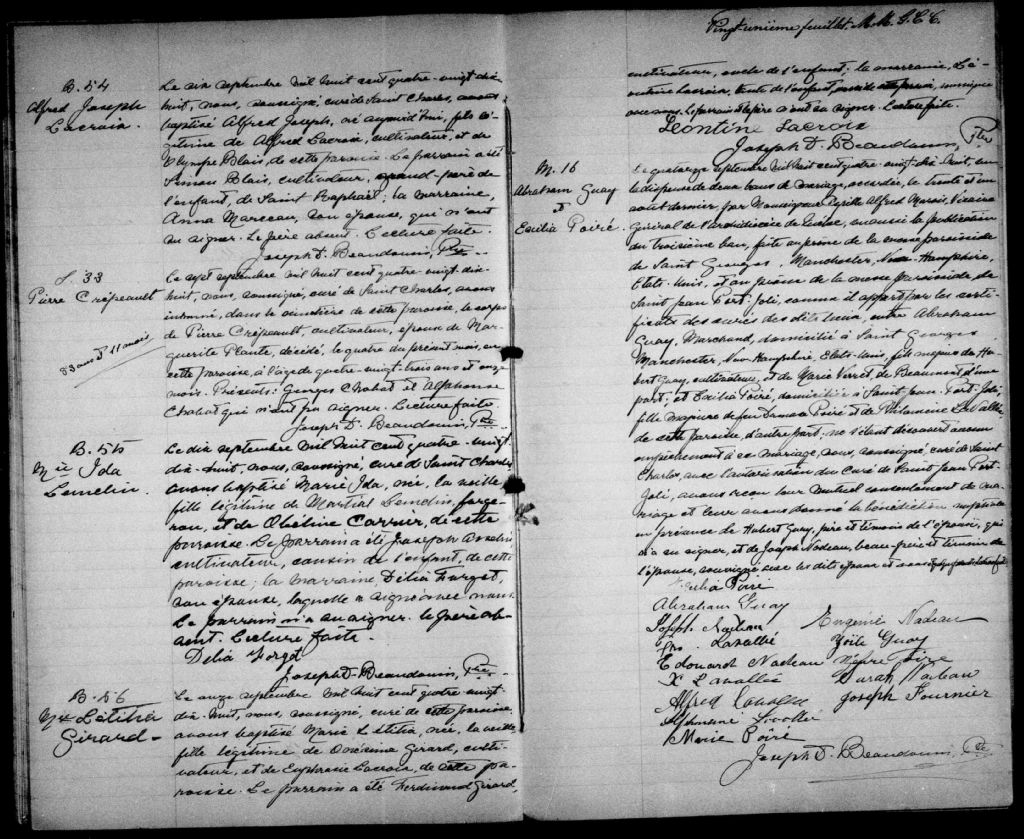 B. 54
Alfred Joseph
Lacroix.
Le dix septembre mil huit cent quatre-vingt-dix-
huit, nous, soussigné, curé de Saint Charles, avons
baptisé Alfred Joseph, né aujourd'hui, fils lé-
gitime de Alfred Lacroix, cultivateur, et de
Olympe Blais, de cette paroisse. Le parrain a été
Simon Blais, cultivateur, grand-père de
l'enfant, de Saint Raphaël; la marraine,
Anna Marceau, son épouse, qui n'ont
su signer. Le père absent. Lecture faite.
Joseph D. Beaudouin, Ptre
S. 33
Pierre Crépeault
83 ans & 11 mois
Le sept septembre mil huit cent quatre-vingt-dix-
huit, nous, soussigné, curé de Saint Charles, avons
inhumé, dans le cimetière de cette paroisse, le corps
de Pierre Crépeault, cultivateur, époux de Mar-
guerite Plante, décédé, le quatre du présent mois, en
cette paroisse, à l'âge de quatre-vingt-trois ans et onze
mois. Présents: Georges Chabot et Alphonse
Chabot qui n'ont pu signer. Lecture faite.
Joseph D. Beaudouin, Ptre
B. 55
Mie Ida
Lemelin.
Le dix septembre mil huit cent quatre-vingt-
dix-huit, nous, soussigné, curé de Saint Charles,
avons baptisé Marie Ida, née, la veille,
fille légitime de Martial Lemelin, forge-
ron, et de Obéline Carrier, de cette
paroisse. Le parrain a été Joseph Gosselin
cultivateur, cousin de l'enfant, de cette
paroisse; la marraine, Délia Forget,
son épouse, laquelle a signé avec nous.
Le parrain n'a su signer. le père ab-
sent. Lecture faite.
Délia Forgét
Joseph D. Beaudouin, Ptre
B. 56
Létitia
Girard-
Le onze septembre mil huit cent quatre-vingt-
dix-huit, nous, soussigné, curé de cette paroisse,
avons baptisé Marie Létitia, née, la veille,
fille légitime de Onésime Girard, culti-
vateur, et de Euphrasie Lacroix, de cette pa-
roisse. Le parrain a été Ferdinand Girard,
Vingt-unième feuillet.
cultivateur, oncle de l'enfant; la marraine, Lé-
ontine Lacroix, tante de l'enfant
avec nous. Le parrain et le père n'ont su signer. Lecture faite.
Léontine Lacroix
Joseph D. Beaudouin, Ptre
M. 16
Abraham Guay
&
Exilia Poiré.
Le quatorze septembre mil huit cent quatre-vingt-dix-huit, vu
la dispense de deux bans de mariage, accordée, le trente et un
août dernier, par Monseigneur Cyrille Alfred Marois, vicaire
général de l'archidiocèse de Québec, vu aussi la publication
du troisième ban, faite au prône de la messe paroissiale
de Saint Georges, Manchester, New-Hampshire,
Etats-Unis, et au prône de la messe paroissiale de
Saint Jean Port-Joli, comme il appert par les certi-
ficats des curés des dits lieux, entre Abraham
Guay, Marchand, domicilié à Saint Georges
Manchester, New-Hampshire, Etats-Unis, fils majeur de Hu-
bert Guay, cultivateur, et de Marie Verret, de Beaumont d'une
part; et Exilia Poiré, domiciliée à Saint-Jean-Port-Joli,
fille majeure de feu Damase Poiré et de Philomène Lavallée
de cette paroisse, d'autre part; ne s'étant découvert aucun
empêchement à ce mariage, nous, soussigné, curé de Saint
Charles, avec l'autorisation du Curé de Saint Jean Port-
Joli, avons reçu leur mutuel consentement de ma-
riage et leur avons donné la bénédiction nuptiale
en présence de Hubert Guay, père et témoin de l'époux, qui
n'a su signer, et de Joseph Nadeau, beau-frère et témoin de
l'épouse, soussigné avec les dits époux et
Exilia Poiré
Abraham Guay
Joseph Nadeau Eugénie Nadeau
Jos. Lavallée Zoïle Guay
Edouard Nadeau
X Lavallée Sarah Nadeau
Alfred Joseph Fournier
Marie Poiré
Joseph D. Beaudouin, Ptre